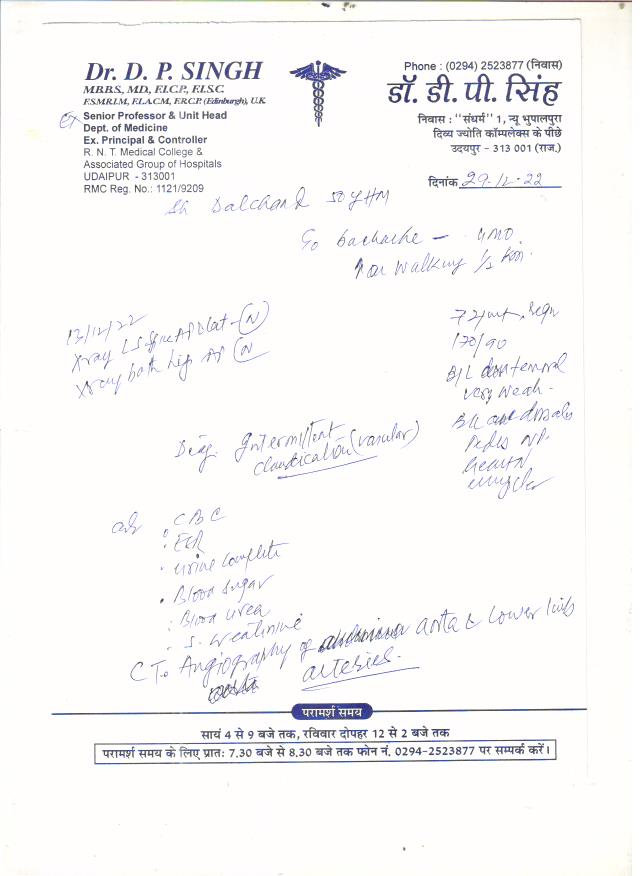 Dr. D. P. SINGH
M.B.B.S, MD, F.I.C.P., F.I.S.C.
F.S.M.R.I.M, F.I.A.C.M, F.R.C.P. (Edinburgh), U.K.
Ex Senior Professor & Unit Head
Dept. of Medicine
Ex. Principal & Controller
R. N. T. Medical College &
Associated Group of Hospitals
UDAIPUR - 313001
RMC Reg. No.: 1121/9209
Phone : (0294) 2523877 (निवास)
डॉ. डी. पी. सिंह
निवास : "संधर्म" 1, न्यू भुपालपुरा
दिव्य ज्योति कॉम्पलेक्स के पीछे
उदयपुर - 313 001 (राज.)
दिनांक 29-12-22
Sh Dalchand 50 y HM
backache - 4 MO
walking 1/2 km.
13/12/22
Xray LS Spine AP Lat - (N)
Xray both hip AP (N)
72/mt, Regn
170/90
B/L femoral
very weak -
dorsalis
Pedis NP.
Diag. Intermittent
claudication (vascular)
adv CBC
ESR
Urine complete
Blood sugar
Blood Urea
S. Creatinine
CT Angiography of abdominal aorta & lower limb
arteries.
परामर्श समय
सायं 4 से 9 बजे तक, रविवार दोपहर 12 से 2 बजे तक
परामर्श समय के लिए प्रातः 7.30 बजे से 8.30 बजे तक फोन नं. 0294-2523877 पर सम्पर्क करें।